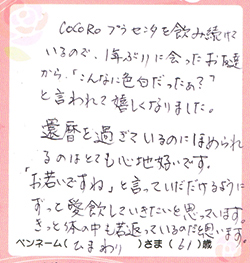 CoCoRo プラセンタを飲み続けて
いるので、1年ぶりに会ったお友達
から、「こんなに色白だったぁ?」
と言われて嬉しくなりました。
還暦を過ぎているのにほめられ
るのはとても心地好いです。
「お若いですね」と言っていただけるように
ずっと愛飲していきたいと思っています。
きっと体の中も若返っているのだと思います。
ペンネーム(ひまわり)さま(61)歳